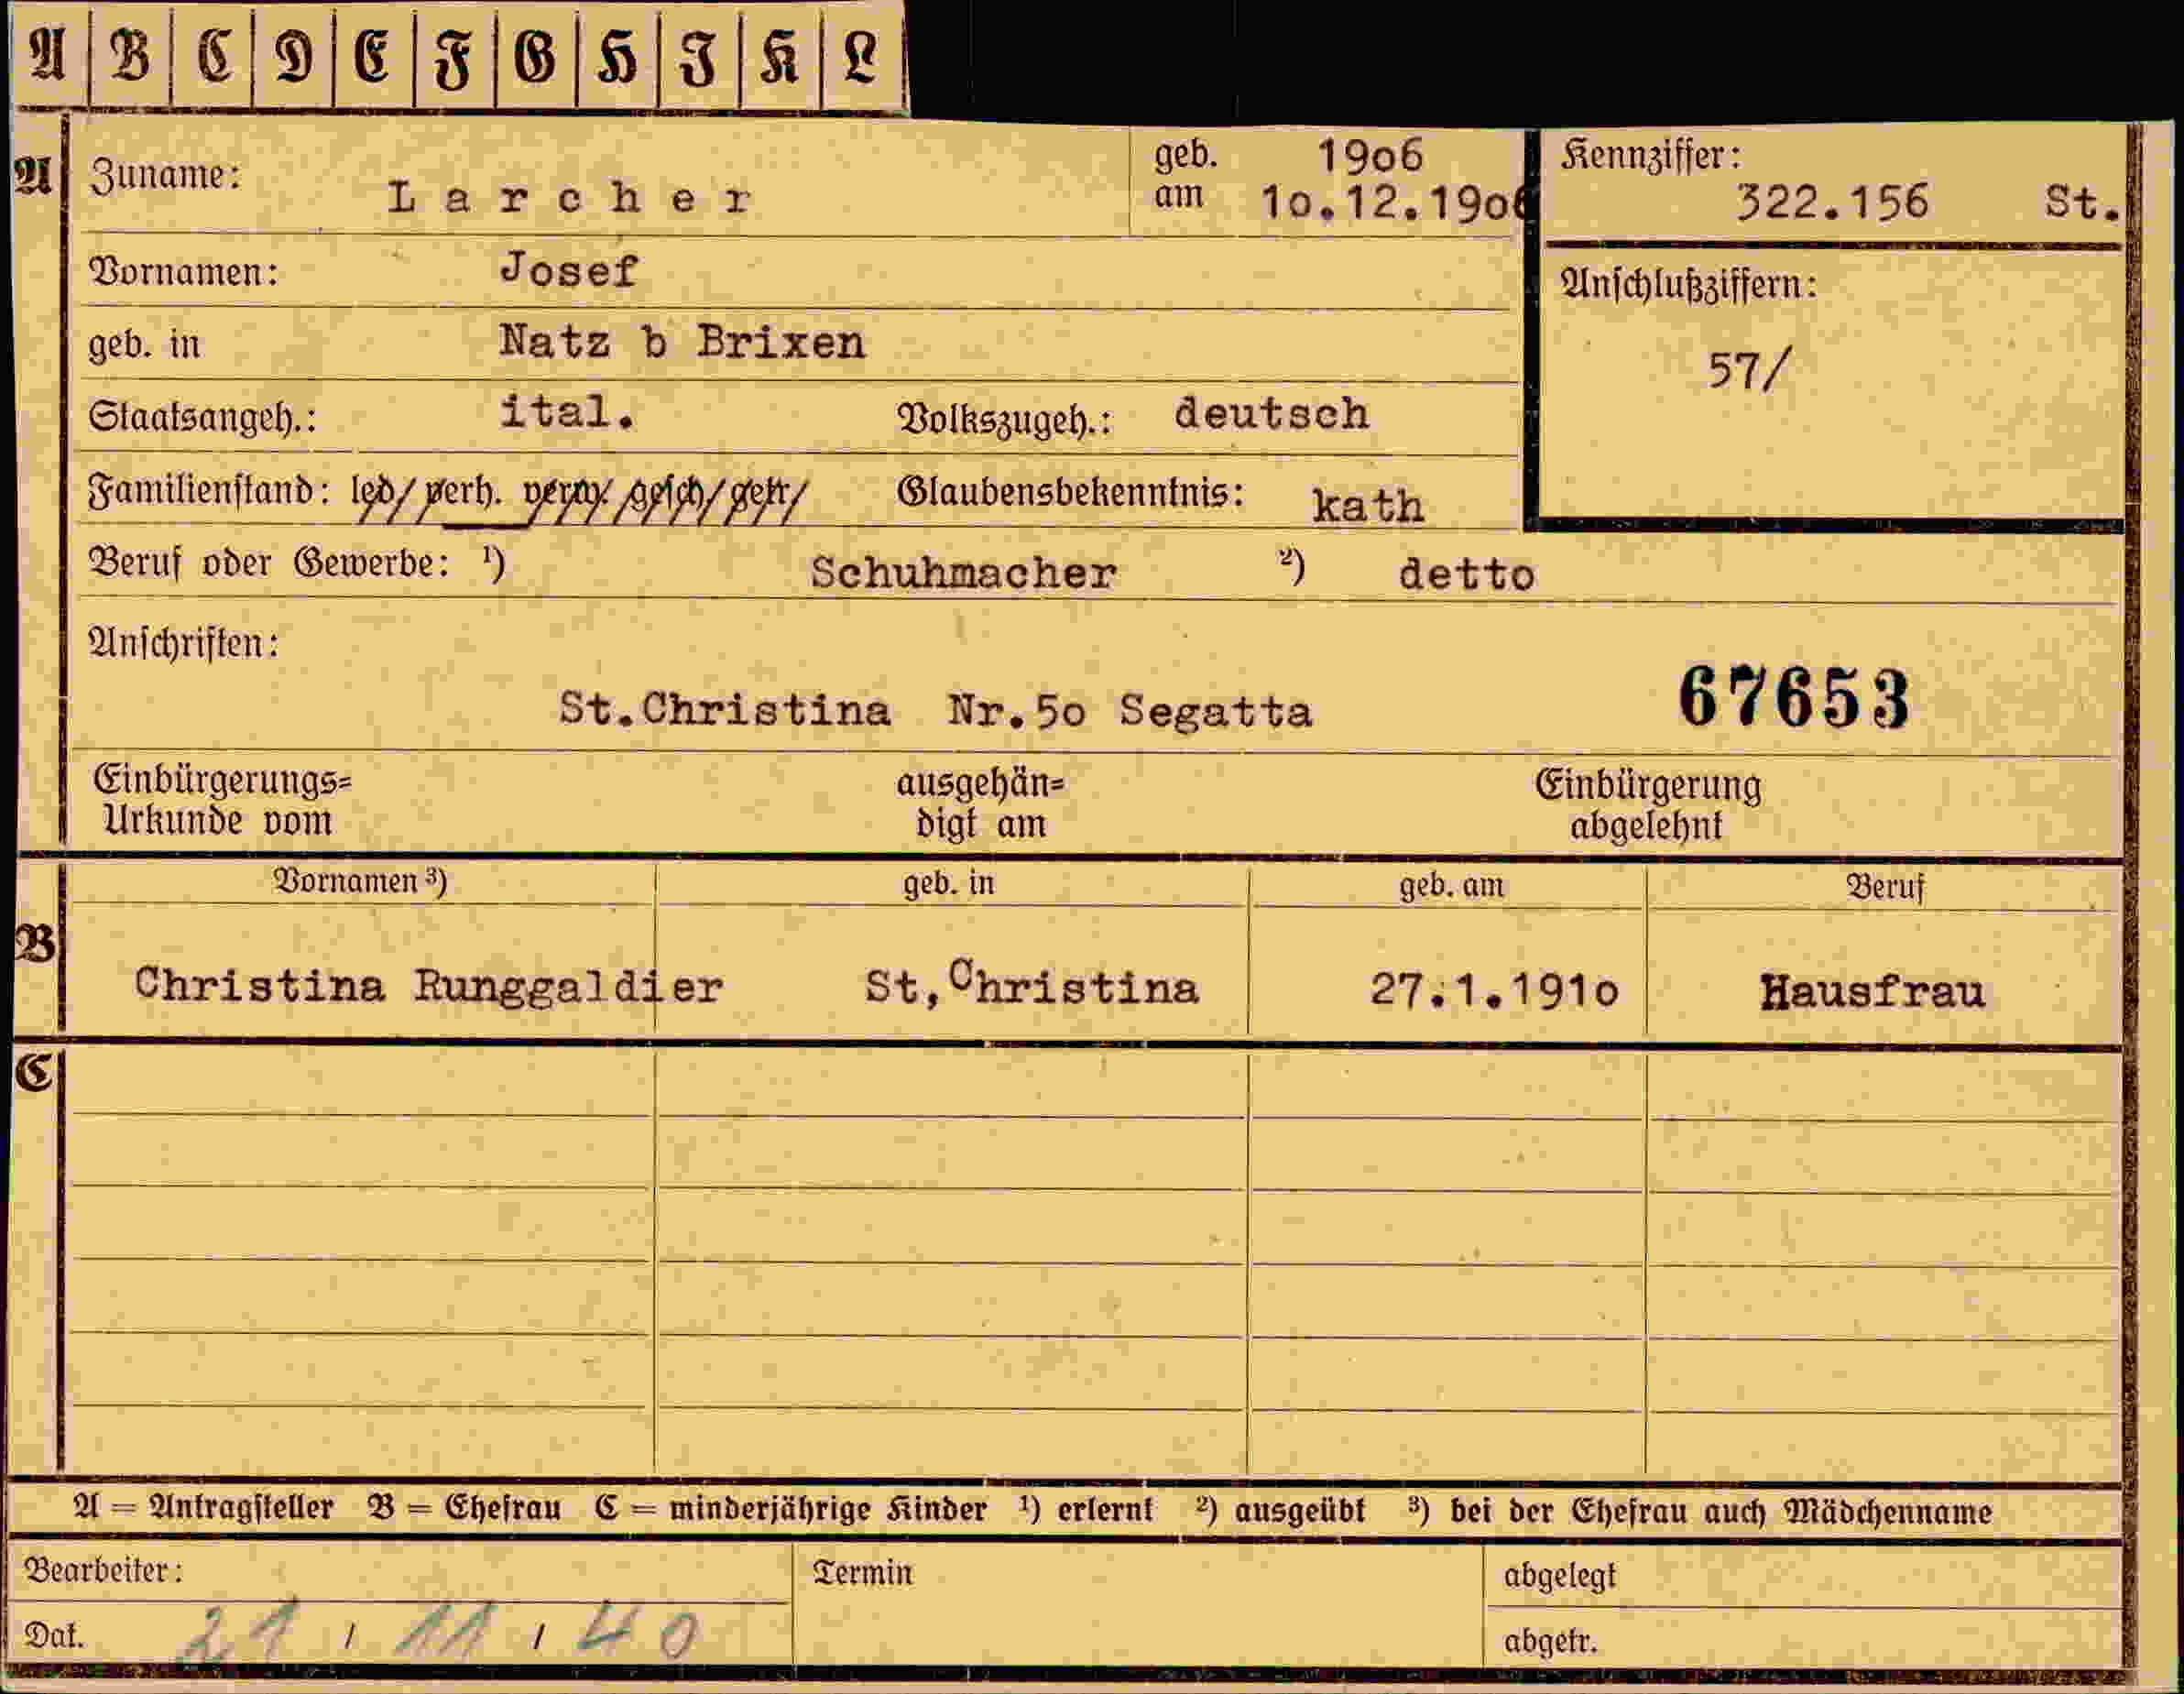 A B C D E F G H I K L
A Zuname: Larcher geb. 1906 am 10.12.1906 Kennziffer: 322.156 St.
Vornamen: Josef Anschlußziffern:
geb. in Natz b Brixen 57/
Staatsangeh.: ital. Volkszugeh.: deutsch
Familienstand: led/ verh. verw. gesch/ getr/ Glaubensbekenntnis: kath
Beruf oder Gewerbe: ¹) Schuhmacher ²) detto
Anschriften:
St.Christina Nr.5o Segatta 67653
Einbürgerungs= ausgehän= Einbürgerung
Urkunde vom digt am abgelehnt
Vornamen ³) geb. in geb. am Beruf
B Christina Runggaldier St,Christina 27.1.191o Hausfrau
C
A = Antragsteller B = Ehefrau C = minderjährige Kinder ¹) erlernt ²) ausgeübt ³) bei der Ehefrau auch Mädchenname
Bearbeiter: Termin abgelegt
Dat. 21 / 11 / 40 abgetr.